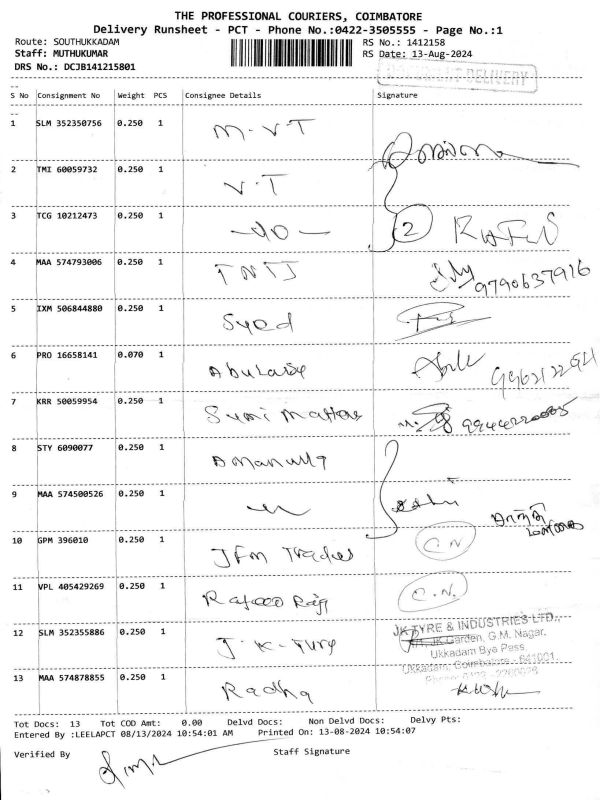 THE PROFESSIONAL COURIERS, COIMBATORE
Delivery Runsheet - PCT - Phone No.:0422-3505555 - Page No.:1
Route: SOUTHUKKADAM RS No.: 1412158
Staff: MUTHUKUMAR RS Date: 13-Aug-2024
DRS No.: DCJB141215801
DELIVERY
S No Consignment No Weight PCS Consignee Details Signature
1 SLM 352350756 0.250 1 M.V.T
2 TMI 60059732 0.250 1 V.T
3 TCG 10212473 0.250 1 -do- 2
4 MAA 574793006 0.250 1 TNTJ 9790637916
5 IXM 506844880 0.250 1 Syed
6 PRO 16658141 0.070 1
7 KRR 50059954 0.250 1
8 STY 6090077 0.250 1 Amanulla
9 MAA 574500526 0.250 1
10 GPM 396010 0.250 1 JFM Traders C.N
11 VPL 405429269 0.250 1 C.N.
12 SLM 352355886 0.250 1 J.K. Tyre
JK TYRE & INDUSTRIES LTD.,
JK Garden, G.M. Nagar,
Ukkadam Bye Pass,
Ukkadam, Coimbatore - 641001
13 MAA 574878855 0.250 1 Radha
Tot Docs: 13 Tot COD Amt: 0.00 Delvd Docs: Non Delvd Docs: Delvy Pts:
Entered By :LEELAPCT 08/13/2024 10:54:01 AM Printed On: 13-08-2024 10:54:07
Verified By Staff Signature